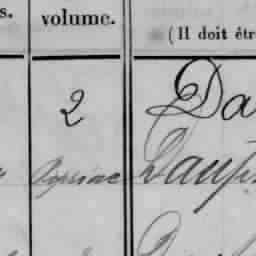 s. volume. (Il doit êtr
2 Da
Daup